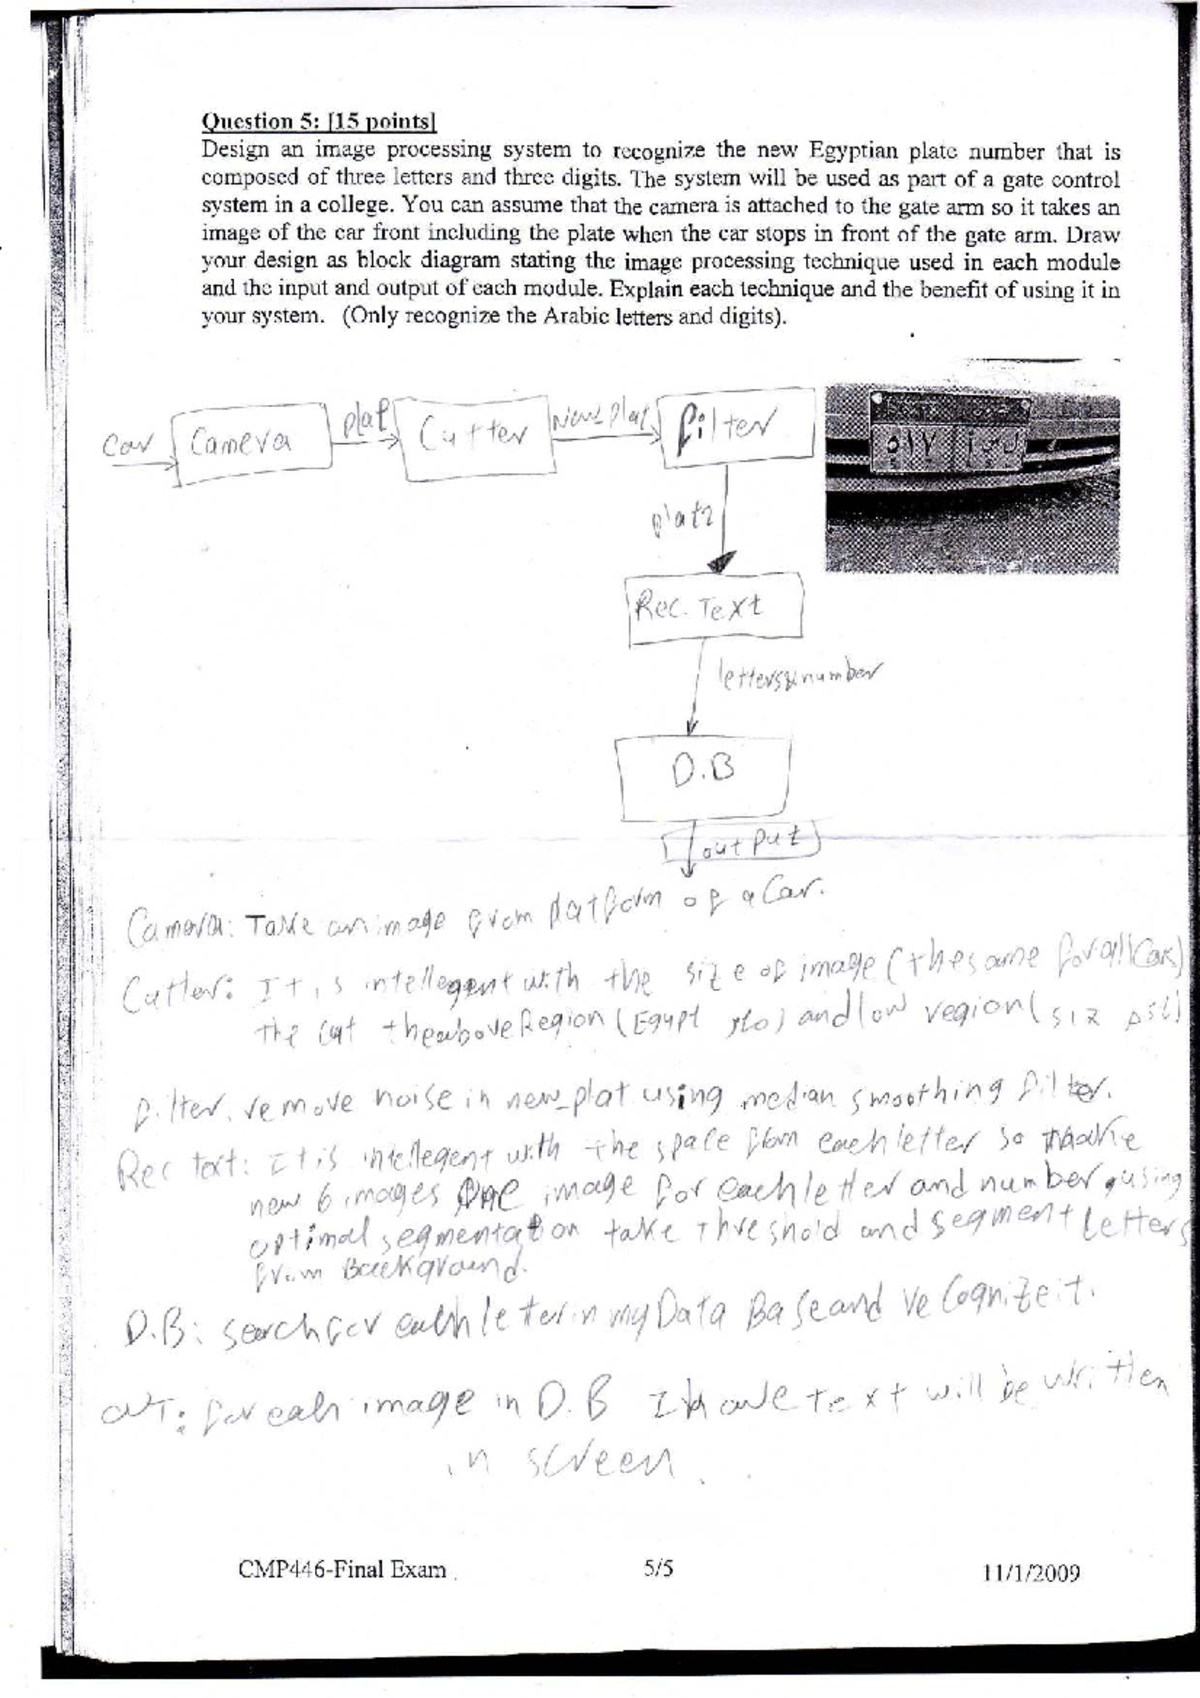 Question 5: [15 points]
Design an image processing system to recognize the new Egyptian plate number that is
composed of three letters and three digits. The system will be used as part of a gate control
system in a college. You can assume that the camera is attached to the gate arm so it takes an
image of the car front including the plate when the car stops in front of the gate arm. Draw
your design as block diagram stating the image processing technique used in each module
and the input and output of each module. Explain each technique and the benefit of using it in
your system. (Only recognize the Arabic letters and digits).
Car Camera plat Cutter New_plat filter
٥١٧
plat2
Rec. Text
letters&number
D.B
output
Camera: Take an image from platform of a Car.
Cutter: It is intellegent with the size of image (the same for all Cars)
the cut the above Region (Egypt) and low region
filter. remove noise in new_plat using median smoothing filter.
Rec text: It is intellegent with the space from each letter so make
new 6 images one image for each letter and number using
optimal segmentation take threshold and segment letters
from Background.
D.B: search for each letter in my Data Base and recognize it.
out: for each image in D.B I have text will be written
in screen.
CMP446-Final Exam 5/5 11/1/2009